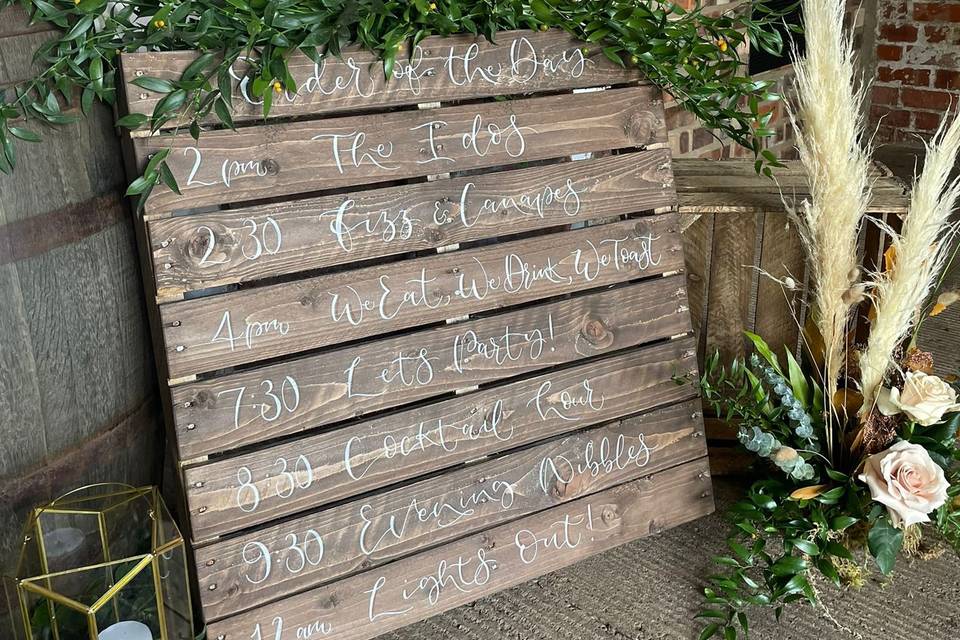 Order of the Day
2 pm The I dos
2:30 Fizz & Canapes
4pm We Eat, We Drink, We Toast
7:30 Lets Party!
8:30 Cocktail hour
9:30 Evening Nibbles
12am Lights Out!